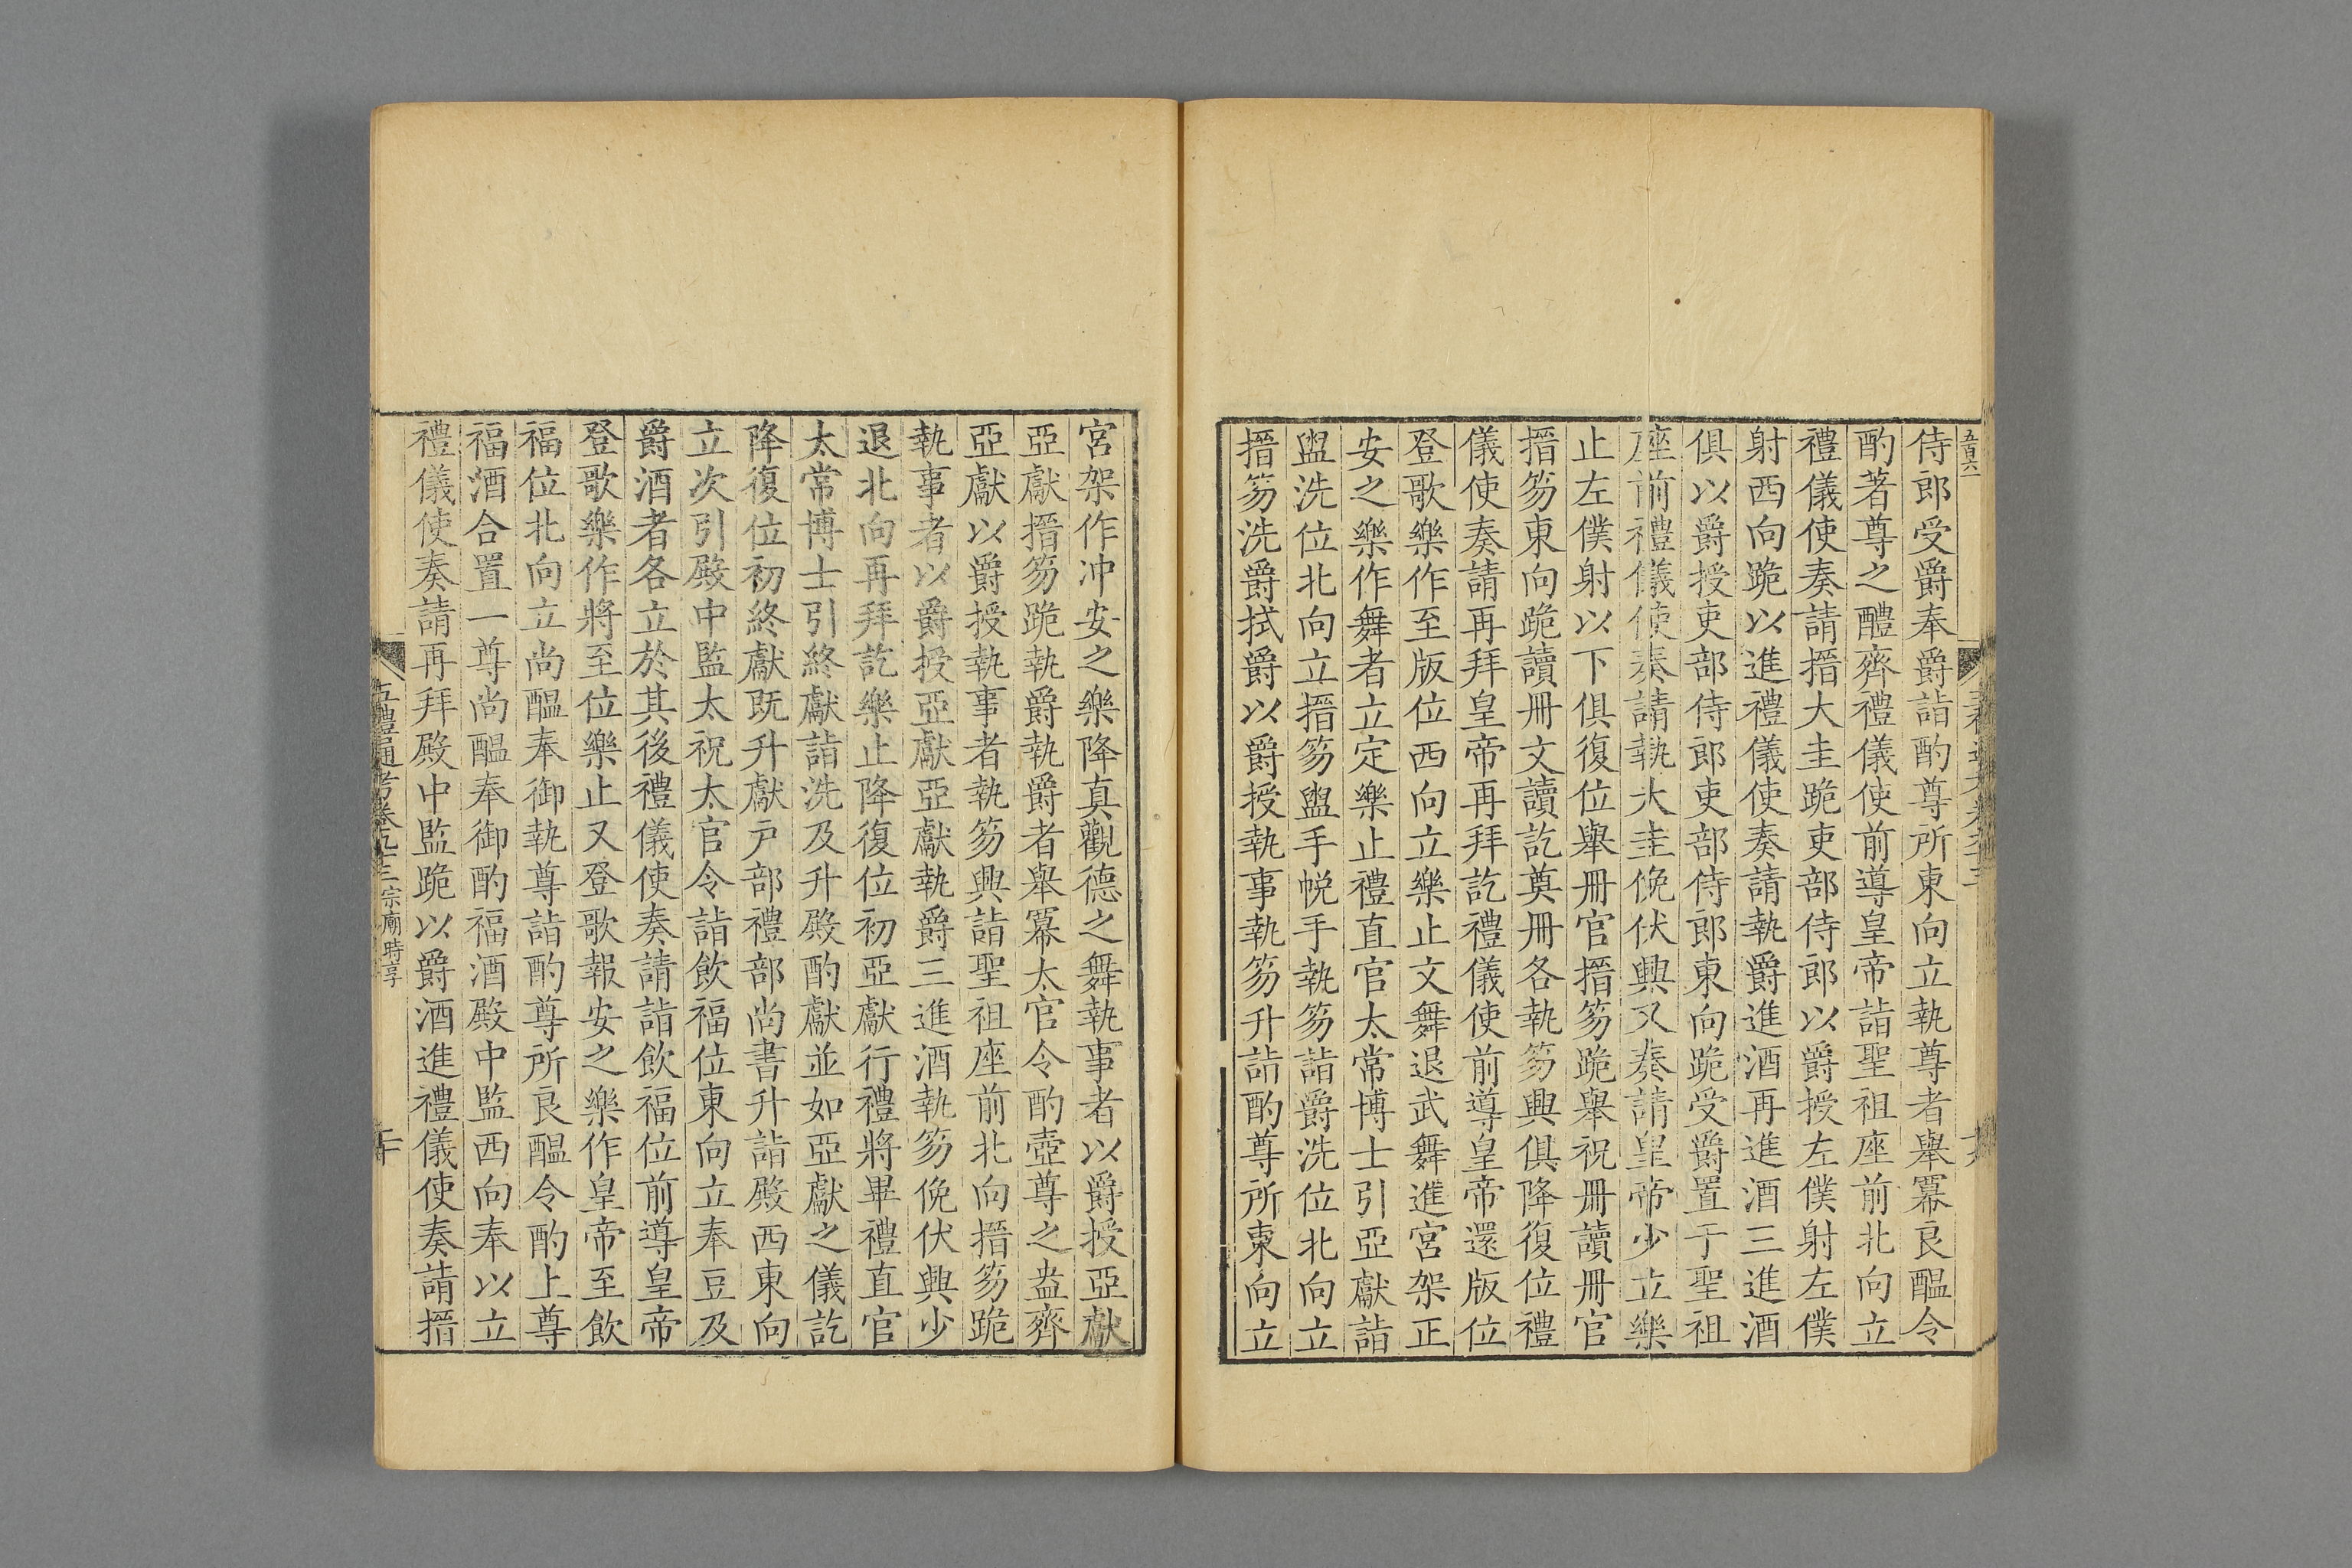 五百六
侍郎受爵奉爵詣酌尊所東向立執尊者舉冪良醖令
酌著尊之醴齊禮儀使前導皇帝詣聖祖座前北向立
禮儀使奏請搢大圭跪吏部侍郎以爵授左僕射左僕
射西向跪以進禮儀使奏請執爵進酒再進酒三進酒
俱以爵授吏部侍郎吏部侍郎東向跪受爵置于聖祖
座前禮儀使奏請執大圭俛伏興又奏請皇帝少立樂
止左僕射以下俱復位舉冊官搢笏跪舉祝冊讀冊官
搢笏東向跪讀冊文讀訖奠冊各執笏興俱降復位禮
儀使奏請再拜皇帝再拜訖禮儀使前導皇帝還版位
登歌樂作至版位西向立樂止文舞退武舞進宮架正
安之樂作舞者立定樂止禮直官太常博士引亞獻詣
盥洗位北向立搢笏盥手帨手執笏詣爵洗位北向立
搢笏洗爵拭爵以爵授執事執笏升詣酌尊所東向立
宮架作冲安之樂降真觀德之舞執事者以爵授亞獻
亞獻搢笏跪執爵執爵者舉冪太官令酌壺尊之盎齊
亞獻以爵授執事者執笏興詣聖祖座前北向搢笏跪
執事者以爵授亞獻亞獻執爵三進酒執笏俛伏興少
退北向再拜訖樂止降復位初亞獻行禮將畢禮直官
太常博士引終獻詣洗及升殿酌獻並如亞獻之儀訖
降復位初終獻既升獻戸部禮部尚書升詣殿西東向
立次引殿中監太祝太官令詣飲福位東向立奉豆及
爵酒者各立於其後禮儀使奏請詣飲福位前導皇帝
登歌樂作將至位樂止又登歌報安之樂作皇帝至飲
福位北向立尚醖奉御執尊詣酌尊所良醖令酌上尊
福酒合置一尊尚醖奉御酌福酒殿中監西向奉以立
禮儀使奏請再拜殿中監跪以爵酒進禮儀使奏請搢
五禮通考卷九十三 宗廟時享